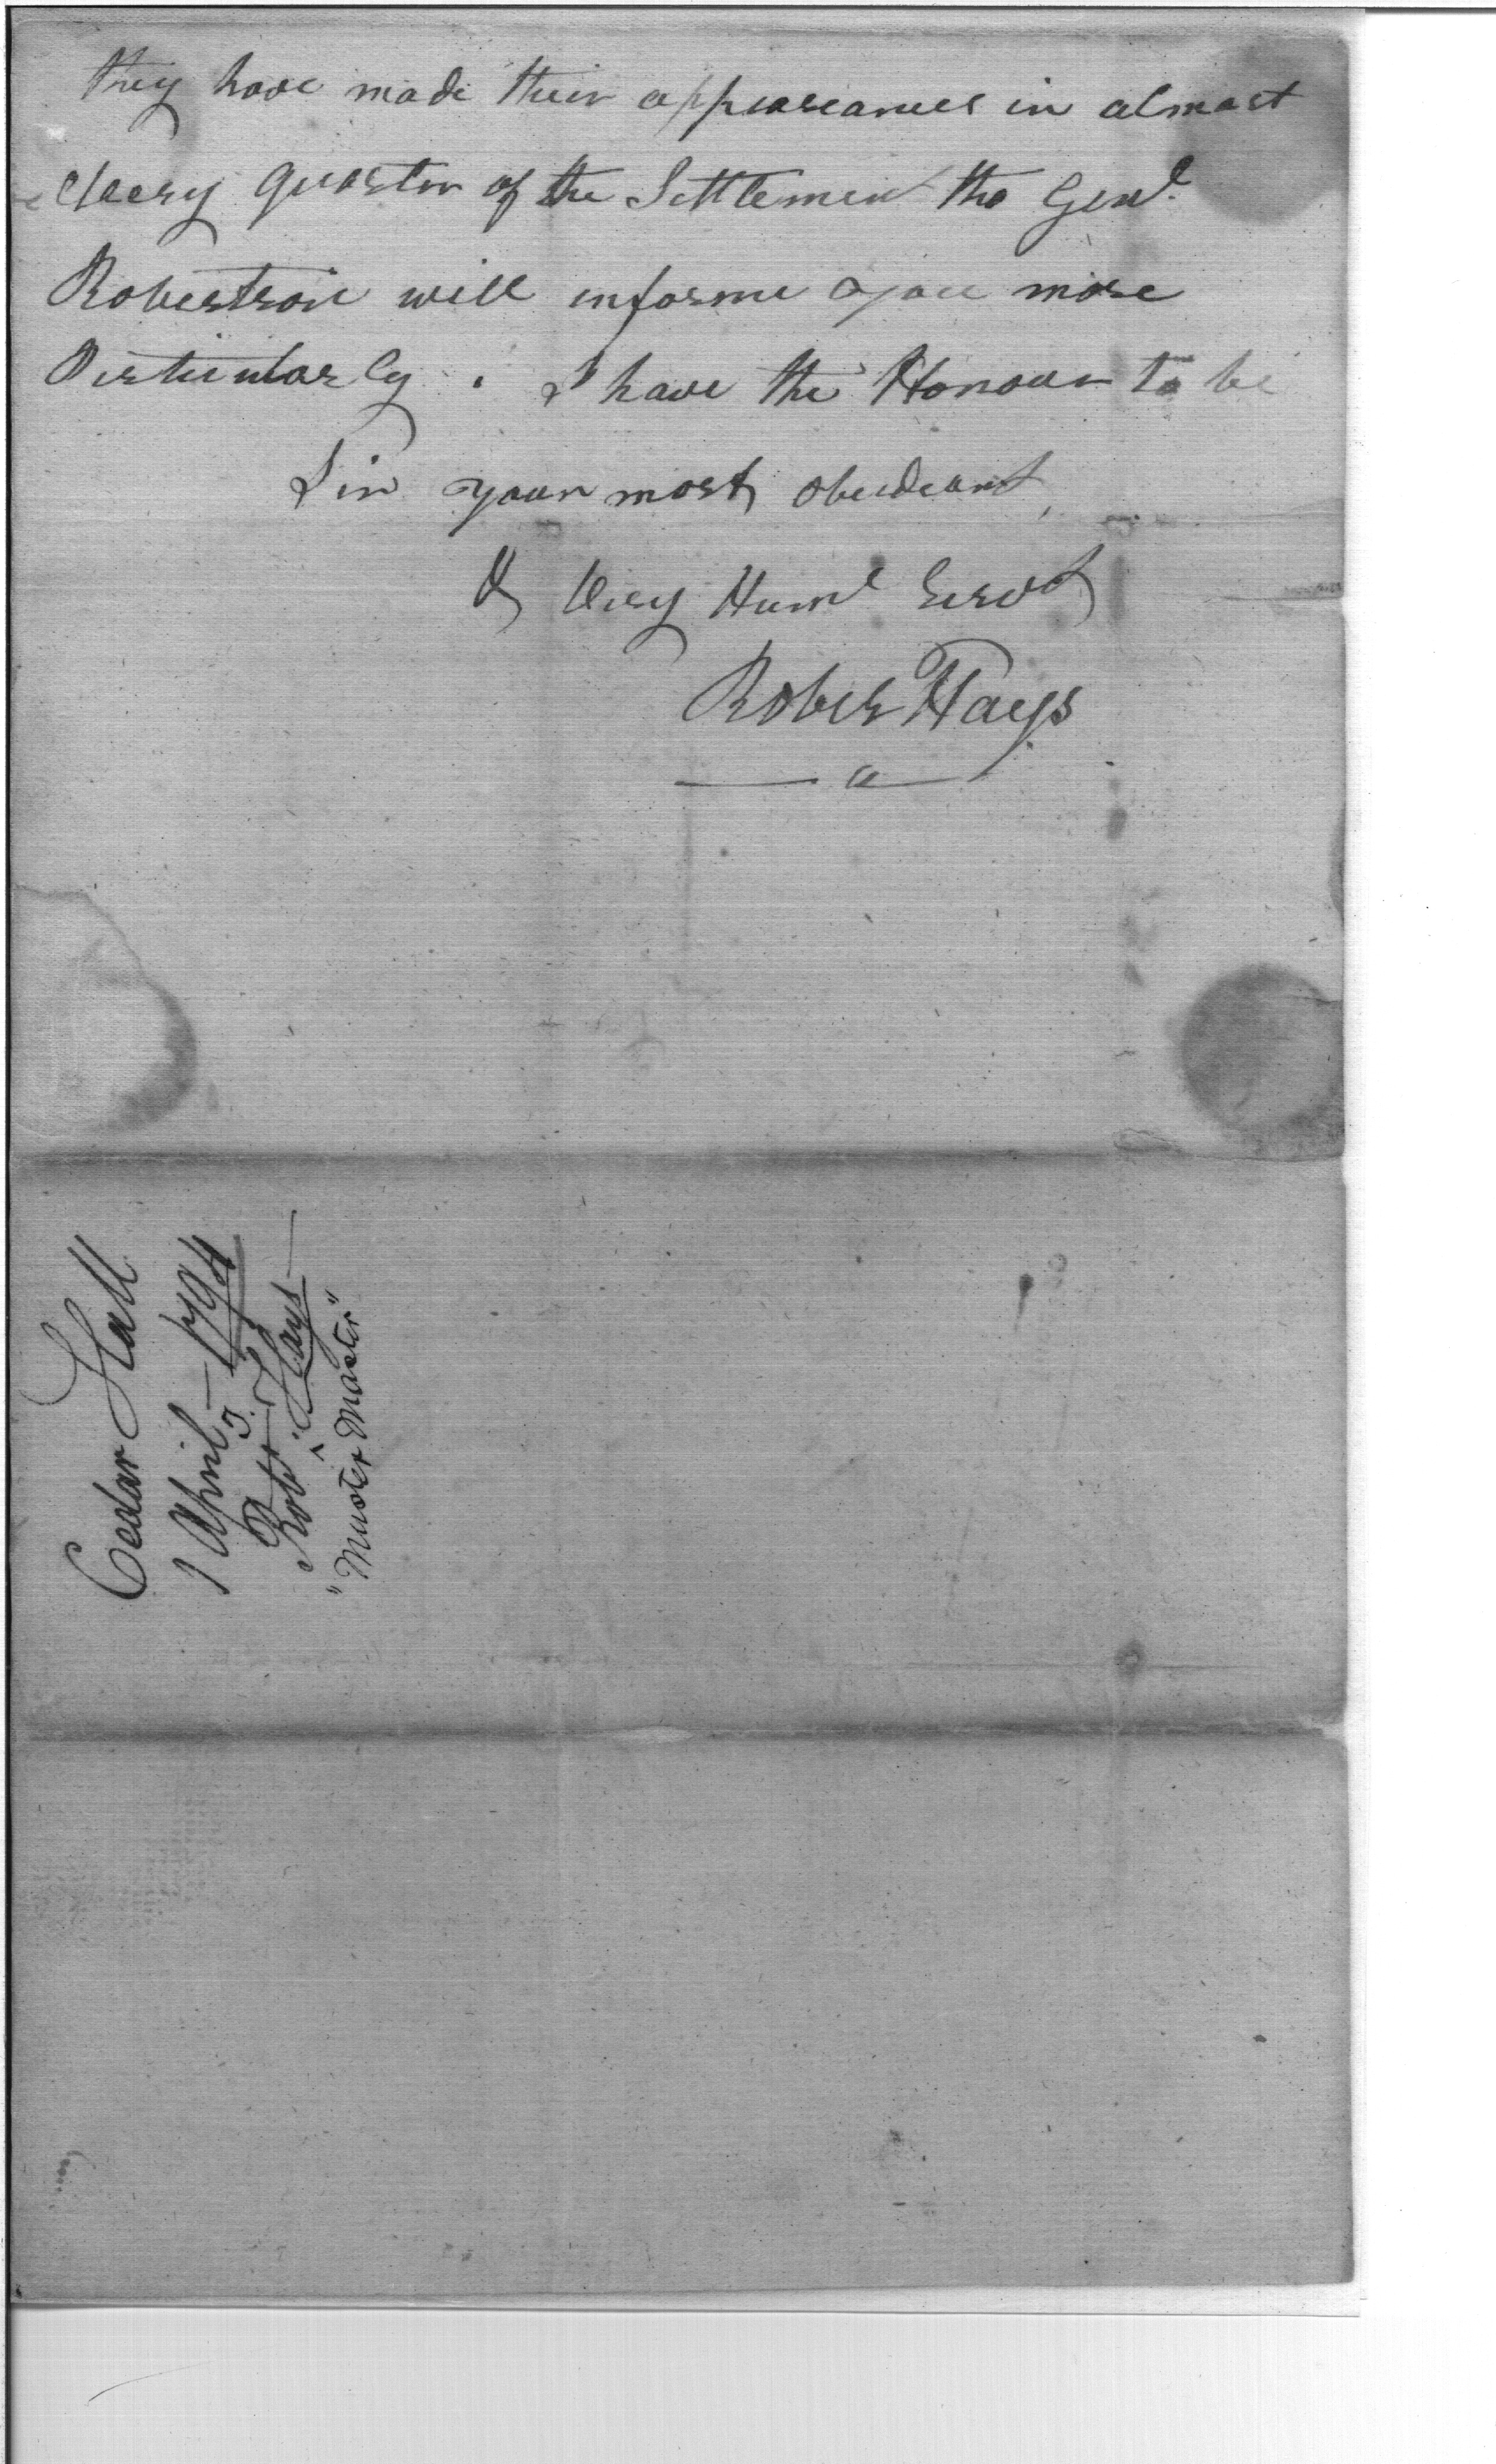 they have made their appearances in almost
every quarter of the Settlement tho Genl.
Robertson will informe you more
Perticularly. I have the Honour to be
Sir your most obeideant
& Very Huml Servt
Robt Hays
Cedar Hall
1 April - 1794
Robt. Hays
"Muster Master"